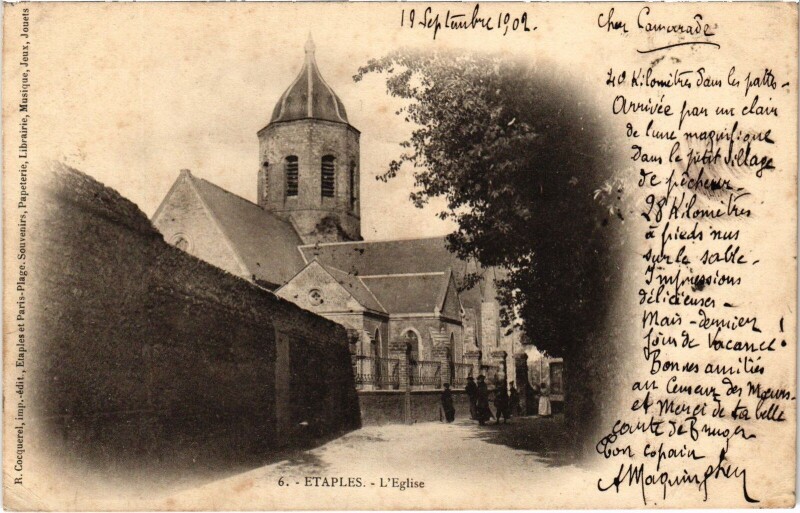 19 Septembre 1902.
Cher Camarade
40 Kilomètres dans les pattes -
Arrivée par un clair
de lune magnifique
Dans le petit Village
de pêcheur -
28 Kilomètres
à pieds nus
sur le sable -
Impressions
délicieuses -
Mais - dernier
jour de Vacance !
Bonnes amitiés
au Censeur des Mœurs -
et Merci de ta belle
carte de Bruges
Ton copain
A Maquinghen
R. Cocquerel, imp.-édit., Etaples et Paris-Plage. Souvenirs, Papeterie, Librairie, Musique, Jeux, Jouets
6. - ETAPLES. - L'Eglise